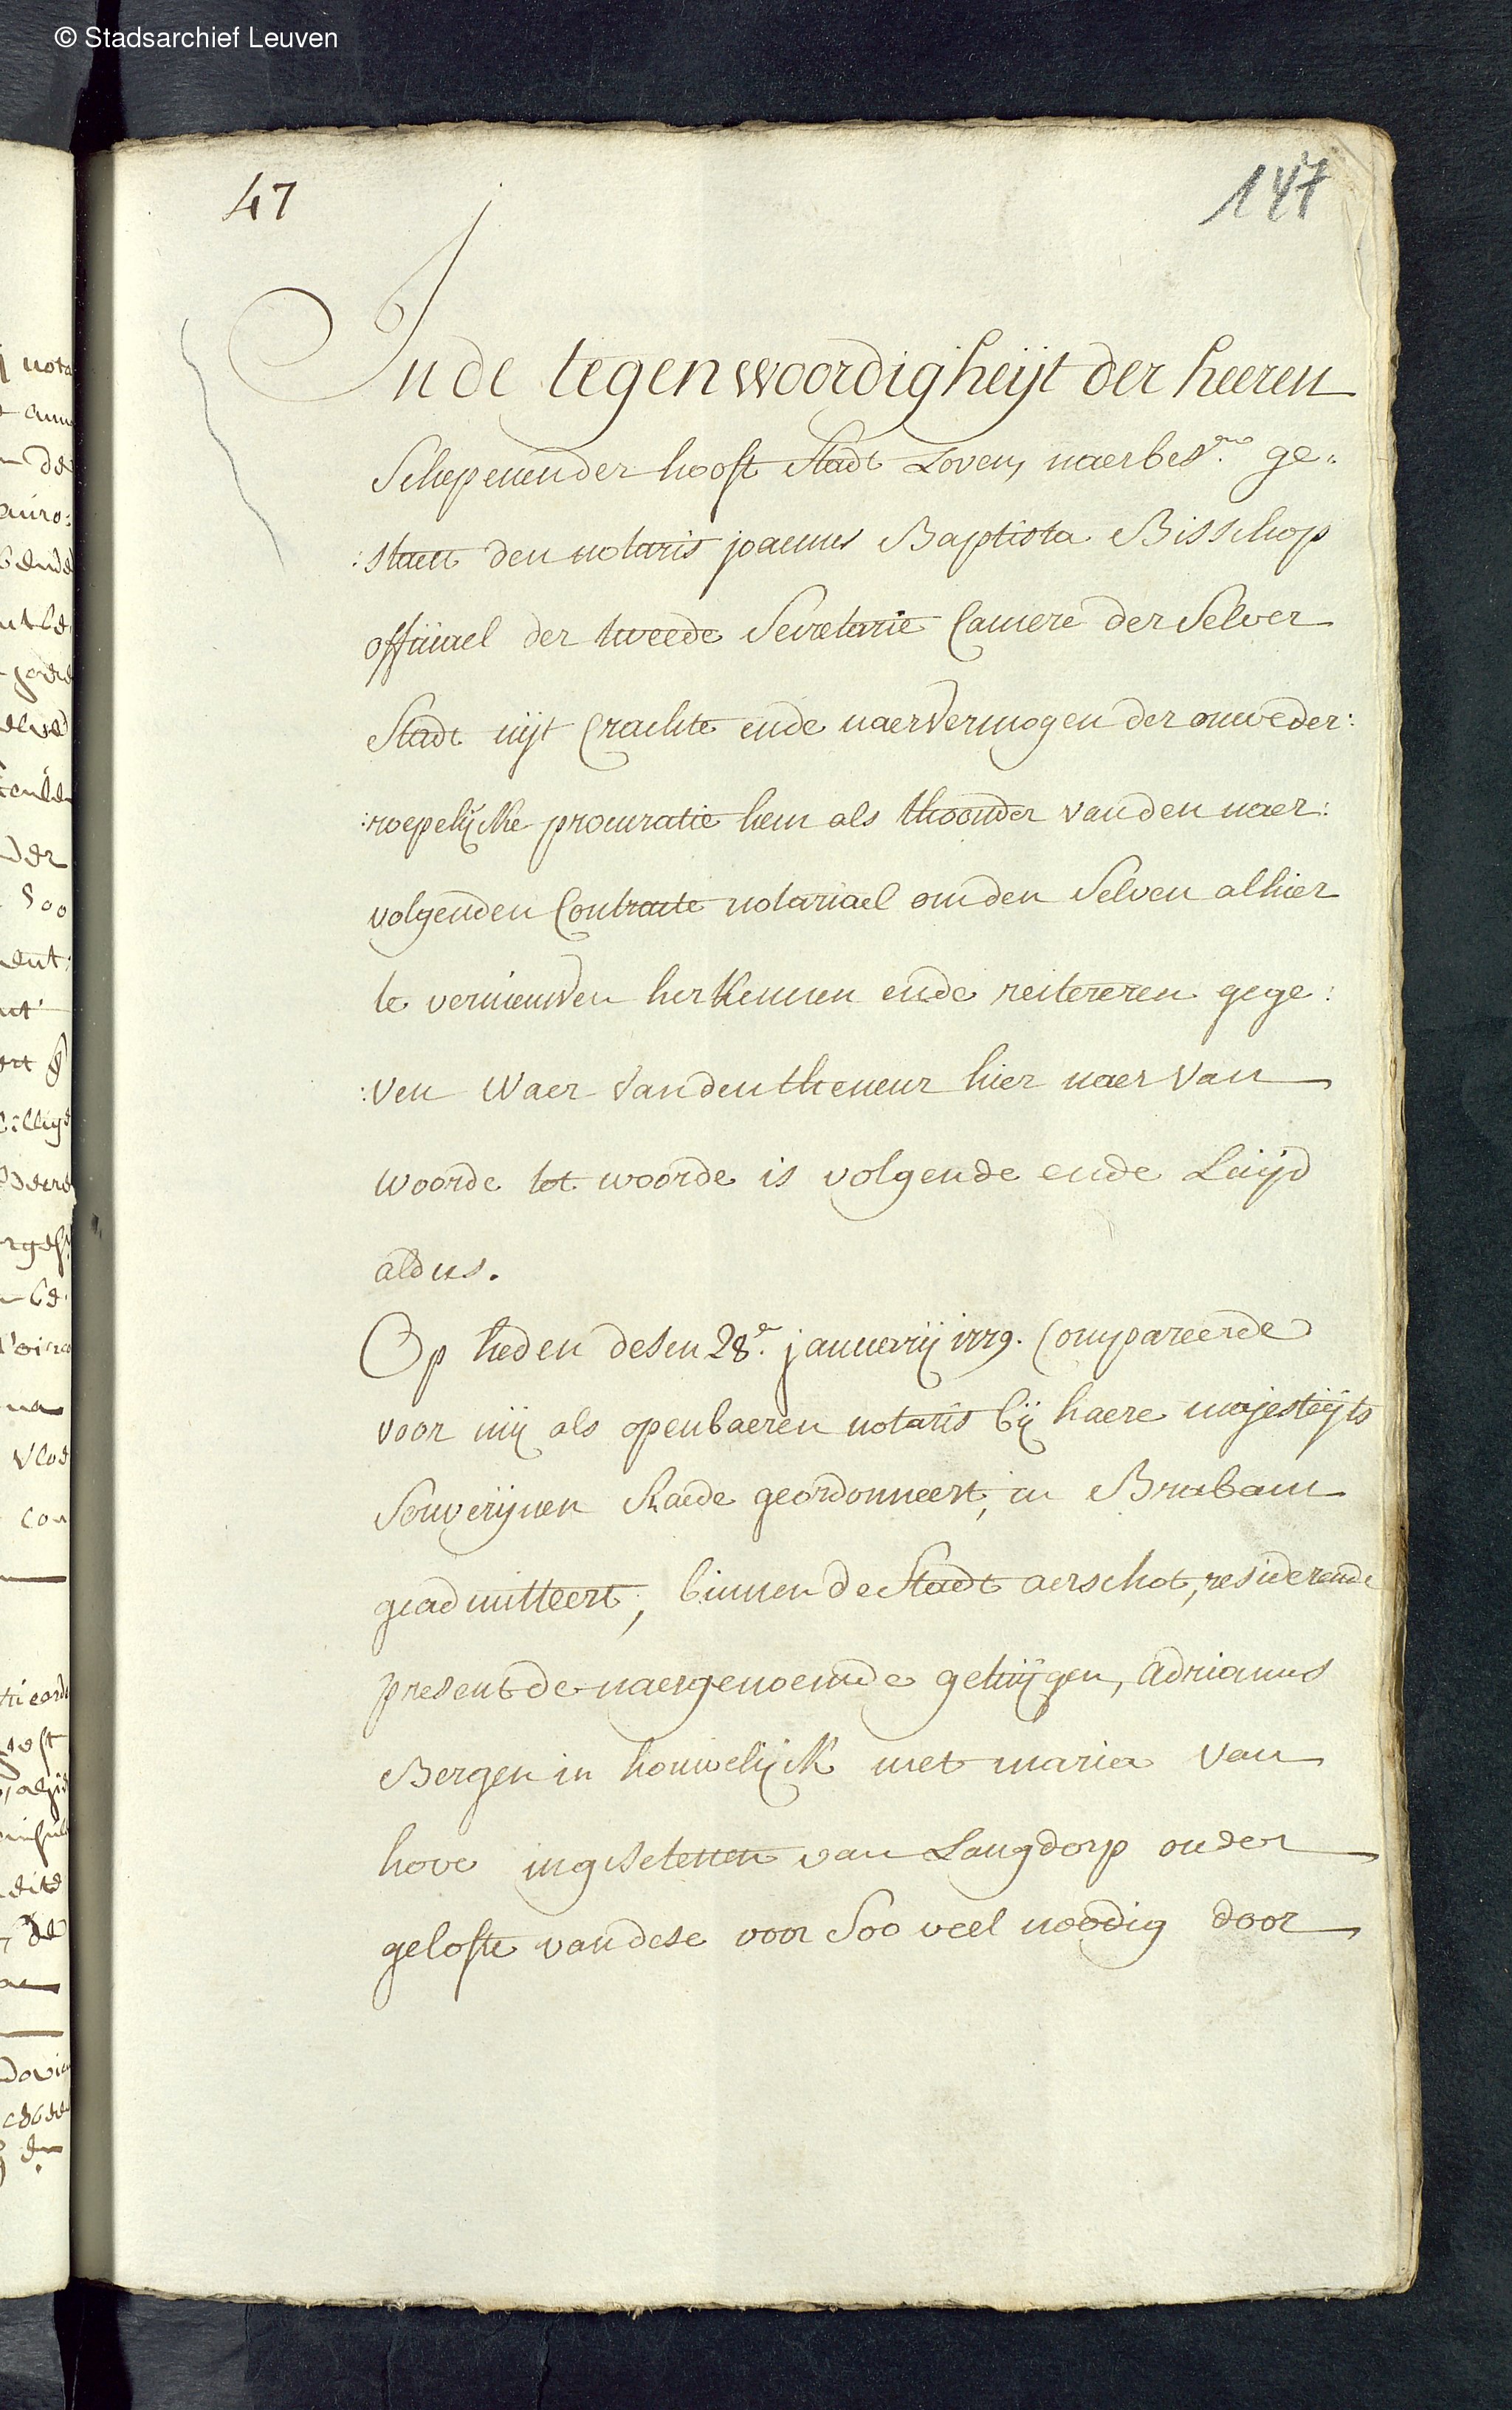 © Stadsarchief Leuven
47
147
In de tegenwoordigheijt der heeren
Schepenen der hooft Stadt Loven, naerbes.en ge:
:staen den notaris joannes Baptista Bisschop
officiael der tweede Secretarie Camere der Selver
Stadt uijt Crachte ende naervermogen der onweder:
:roepelijcke procuratie hem als thoonder van den naer:
volgenden Contracte notariael om den Selven alhier
te vernieuwen herkennen ende reitereren gege:
:ven waer van den theneur hier naer van
woorde tot woorde is volgende ende Luijd
aldus.
Op heden desen 28.e januarij 1779. Compareerde
voor mij als openbaeren notaris bij haere majesteijts
Souverijnen Raede geordonneert, in Brabant
geadmitteert, binnen de Stadt aerschot, residerende
present de naergenoemde getuijgen, Adrianus
Bergen in houwelijck met maria van
hove ingesetenen van Langdorp onder
gelofte van dese voor Soo veel noodig door